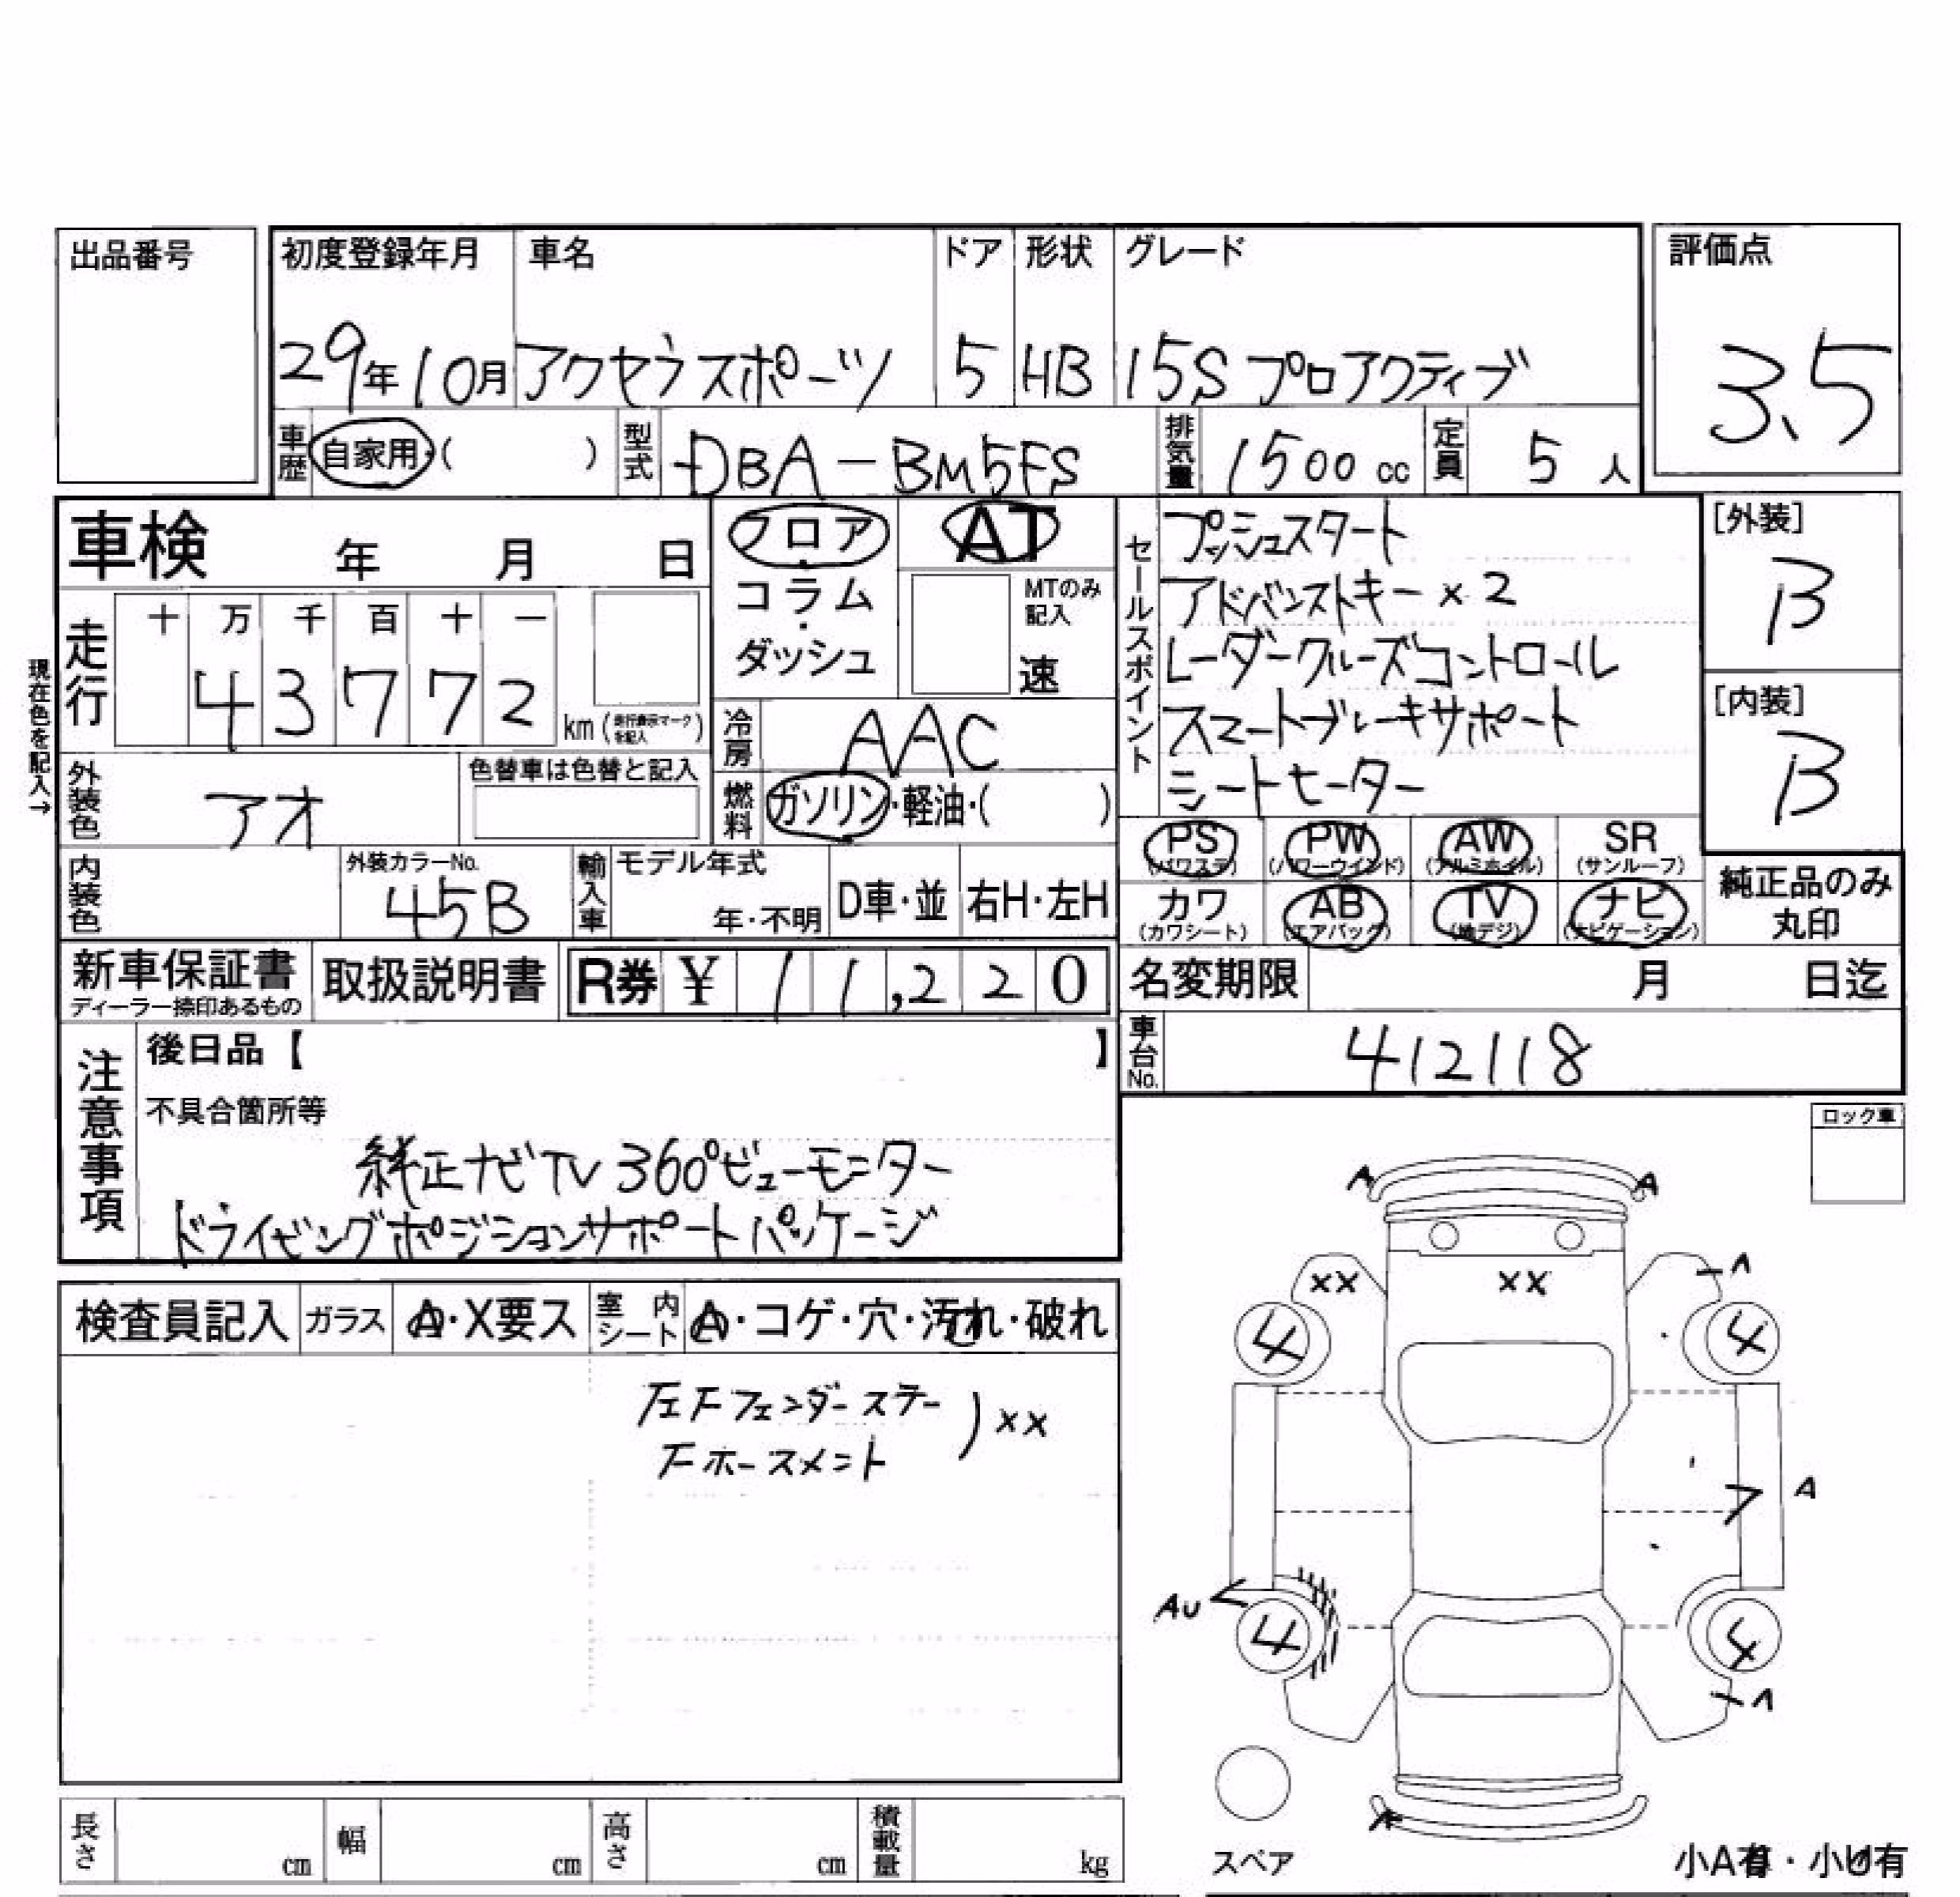 出品番号
初度登録年月 車名 ドア 形状 グレード 評価点
29年10月 アクセラスポーツ 5 HB 15S プロアクティブ 3.5
車歴 自家用・( ) 型式 DBA-BM5FS 排気量 1500cc 定員 5人
車検 年 月 日
フロア・コラム・ダッシュ
AT
MTのみ記入
速
セールスポイント
プッシュスタート
アドバンストキー×2
レーダークルーズコントロール
スマートブレーキサポート
シートヒーター
[外装]
B
[内装]
B
走行 十 万 千 百 十 一
43772 km(走行表示マークを記入)
現在色を記入→
冷房 AAC
燃料 ガソリン・軽油・( )
外装色 アオ 色替車は色替と記入
内装色 外装カラーNo. 45B 輸入車 モデル年式 年・不明 D車・並 右H・左H
PS(パワステ) PW(パワーウインド) AW(アルミホイル) SR(サンルーフ)
カワ(カワシート) AB(エアバッグ) TV(地デジ) ナビ(ナビゲーション)
純正品のみ丸印
新車保証書 ディーラー捺印あるもの 取扱説明書 R券 ¥11,220
名変期限 月 日迄
車台No. 412118
注意事項 後日品【 】
不具合箇所等
純正ナビTV 360°ビューモニター
ドライビングポジションサポートパッケージ
ロック車
検査員記入 ガラス A・X要ス 室内シート A・コゲ・穴・汚れ・破れ
左Fフェンダーステー
Fホースメント ) ××
A A
×× ×× A
4 4
7 A
AU 4 4
A
A
スペア
小A有・小U有
長さ cm 幅 cm 高さ cm 積載量 kg